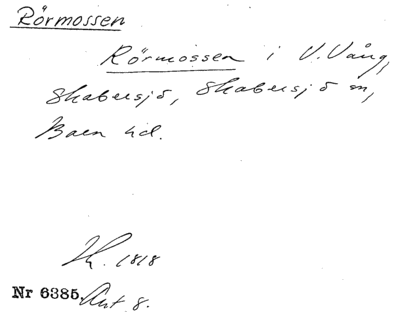 Rörmossen
Rörmossen i V. Vång,
Skabersjö, Skabersjö sn,
Bara hd.
1818
Nr 6385. Akt 8.